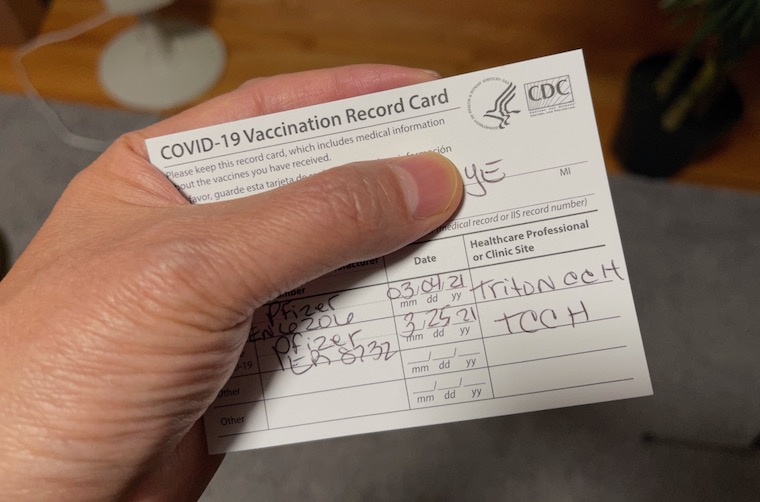 COVID-19 Vaccination Record Card
CDC
Please keep this record card, which includes medical information
about the vaccines you have received.
favor, guarde esta tarjeta de información
YE
MI
medical record or IIS record number)
Date
Healthcare Professional
or Clinic Site
Pfizer
EN6206
03/04/21
mm dd yy
TRITON CCH
Pfizer
ER 8732
3/25/21
mm dd yy
TCCH
-19
Other
mm dd yy
Other
mm dd yy